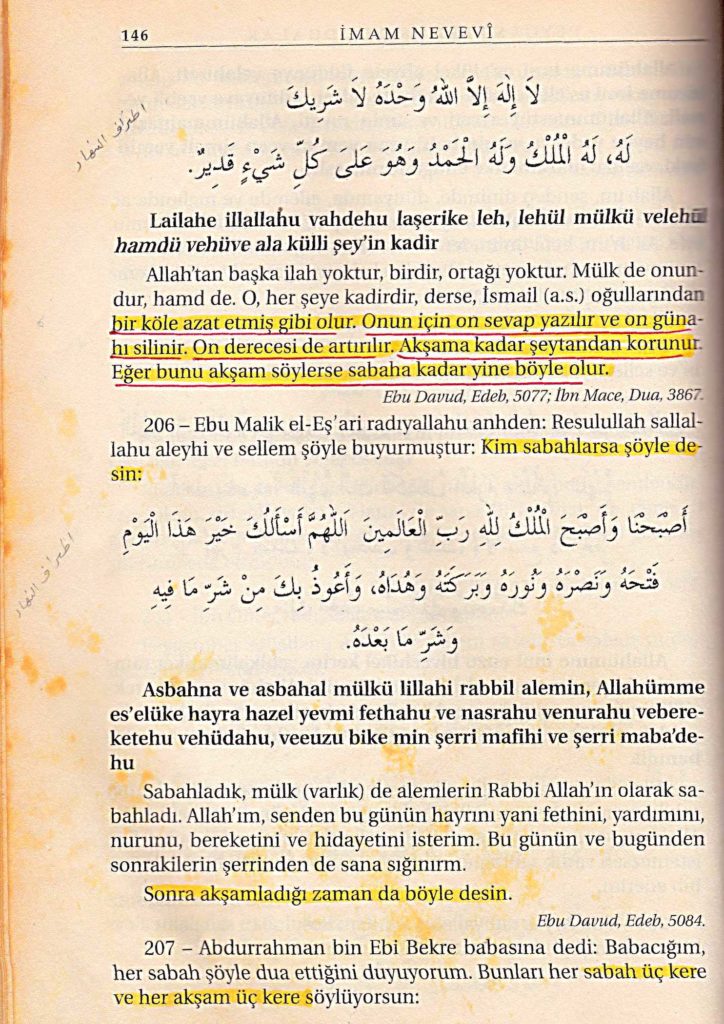 146 İMAM NEVEVÎ
لَا إِلٰهَ إِلَّا اللّٰهُ وَحْدَهُ لَا شَرِيكَ
لَهُ، لَهُ الْمُلْكُ وَلَهُ الْحَمْدُ وَهُوَ عَلَى كُلِّ شَيْءٍ قَدِيرٌ.
اطراف النهار
Lailahe illallahu vahdehu laşerike leh, lehül mülkü velehül
hamdü vehüve ala külli şey'in kadir
Allah'tan başka ilah yoktur, birdir, ortağı yoktur. Mülk de onun-
dur, hamd de. O, her şeye kadirdir, derse, İsmail (a.s.) oğullarından
bir köle azat etmiş gibi olur. Onun için on sevap yazılır ve on güna-
hı silinir. On derecesi de artırılır. Akşama kadar şeytandan korunur.
Eğer bunu akşam söylerse sabaha kadar yine böyle olur.
Ebu Davud, Edeb, 5077; İbn Mace, Dua, 3867.
206 – Ebu Malik el-Eş'ari radıyallahu anhden: Resulullah sallal-
lahu aleyhi ve sellem şöyle buyurmuştur: Kim sabahlarsa şöyle de-
sin:
أَصْبَحْنَا وَأَصْبَحَ الْمُلْكُ لِلّٰهِ رَبِّ الْعَالَمِينَ اَللّٰهُمَّ أَسْأَلُكَ خَيْرَ هَذَا الْيَوْمِ
فَتْحَهُ وَنَصْرَهُ وَنُورَهُ وَبَرَكَتَهُ وَهُدَاهُ، وَأَعُوذُ بِكَ مِنْ شَرِّ مَا فِيهِ
وَشَرِّ مَا بَعْدَهُ.
اطراف النهار
Asbahna ve asbahal mülkü lillahi rabbil alemin, Allahümme
es'elüke hayra hazel yevmi fethahu ve nasrahu venurahu vebere-
ketehu vehüdahu, veeuzu bike min şerri mafihi ve şerri maba'de-
hu
Sabahladık, mülk (varlık) de alemlerin Rabbi Allah'ın olarak sa-
bahladı. Allah'ım, senden bu günün hayrını yani fethini, yardımını,
nurunu, bereketini ve hidayetini isterim. Bu günün ve bugünden
sonrakilerin şerrinden de sana sığınırm.
Sonra akşamladığı zaman da böyle desin.
Ebu Davud, Edeb, 5084.
207 – Abdurrahman bin Ebi Bekre babasına dedi: Babacığım,
her sabah şöyle dua ettiğini duyuyorum. Bunları her sabah üç kere
ve her akşam üç kere söylüyorsun: